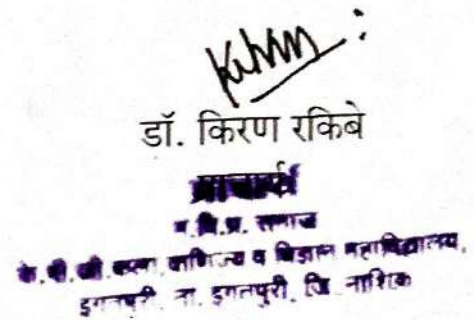 डॉ. किरण रकिबे
प्राचार्य
म.वि.प्र. समाज
के.पी.जी. कला, वाणिज्य व विज्ञान महाविद्यालय,
इगतपुरी, ता. इगतपुरी, जि. नाशिक